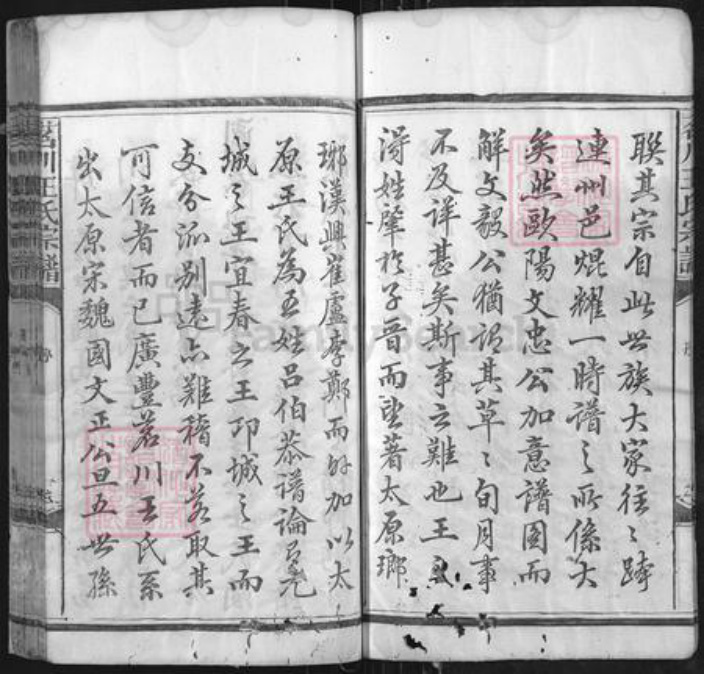 聯其宗自此世族大家往〻跨
連州邑焜耀一時譜之所係大
矣然歐陽文忠公加意譜圖而
解文毅公猶謂其草〻旬月事
不及詳甚矣斯事之難也王氏
得姓肇於子晉而望著太原瑯
琊漢興崔盧李鄭而外加以太
原王氏為五姓呂伯恭譜論有元
城之王宜春之王邛城之王而
支分派別遠亦難稽不若取其
可信者而已廣豐茗川王氏系
出太原宋魏國文正公旦五世孫
茗川王氏宗譜
FamilySearch